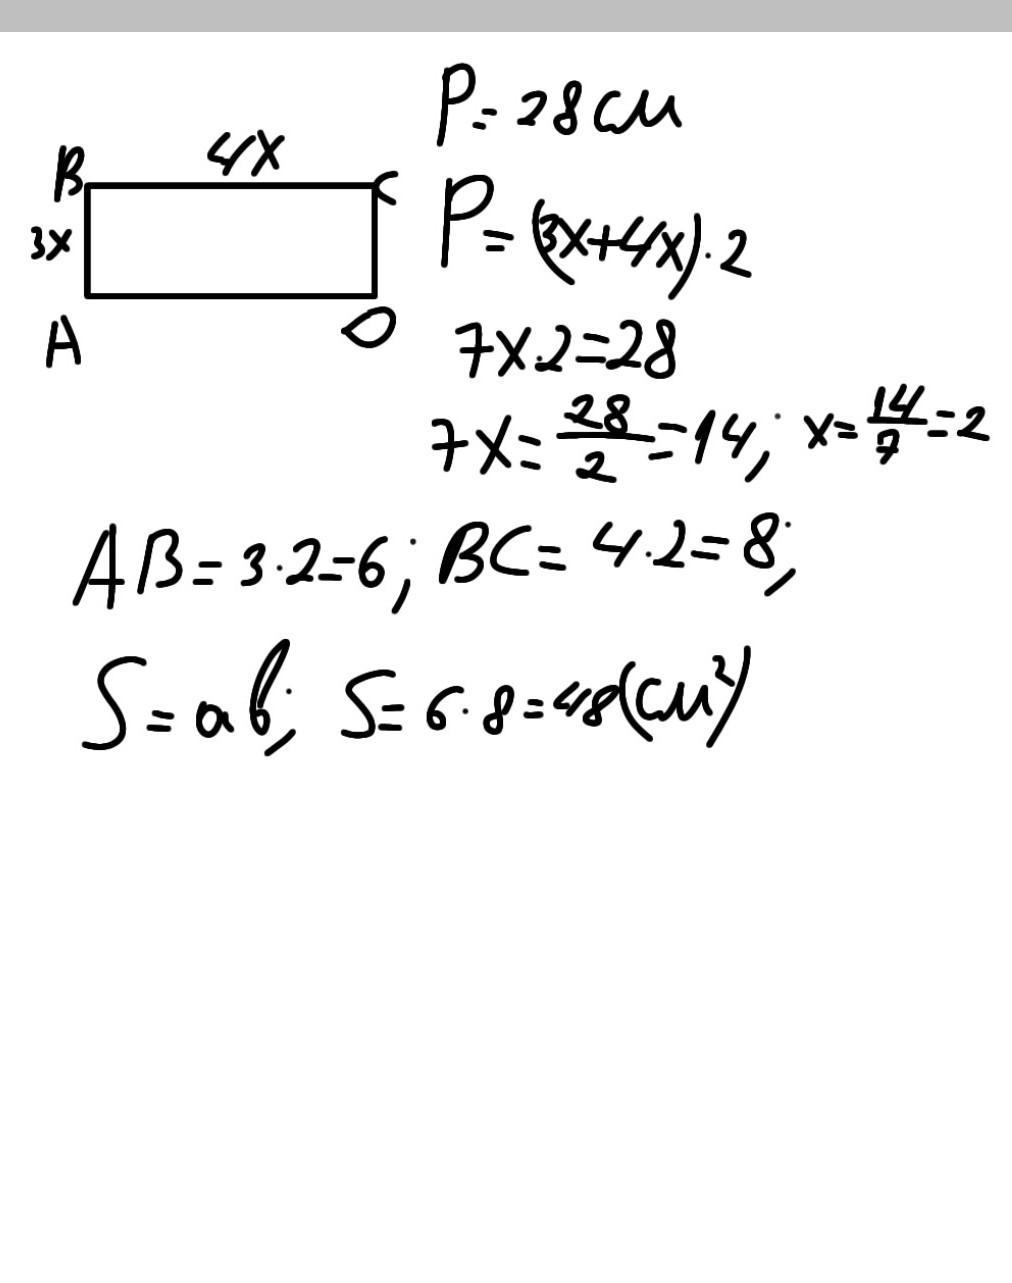 P = 28 см
B 4x C
P = (3x+4x)·2
3x
A D
7x·2=28
7x = 28/2 = 14; x = 14/7 = 2
AB = 3·2=6; BC = 4·2=8;
S = ab; S = 6·8=48(см²)